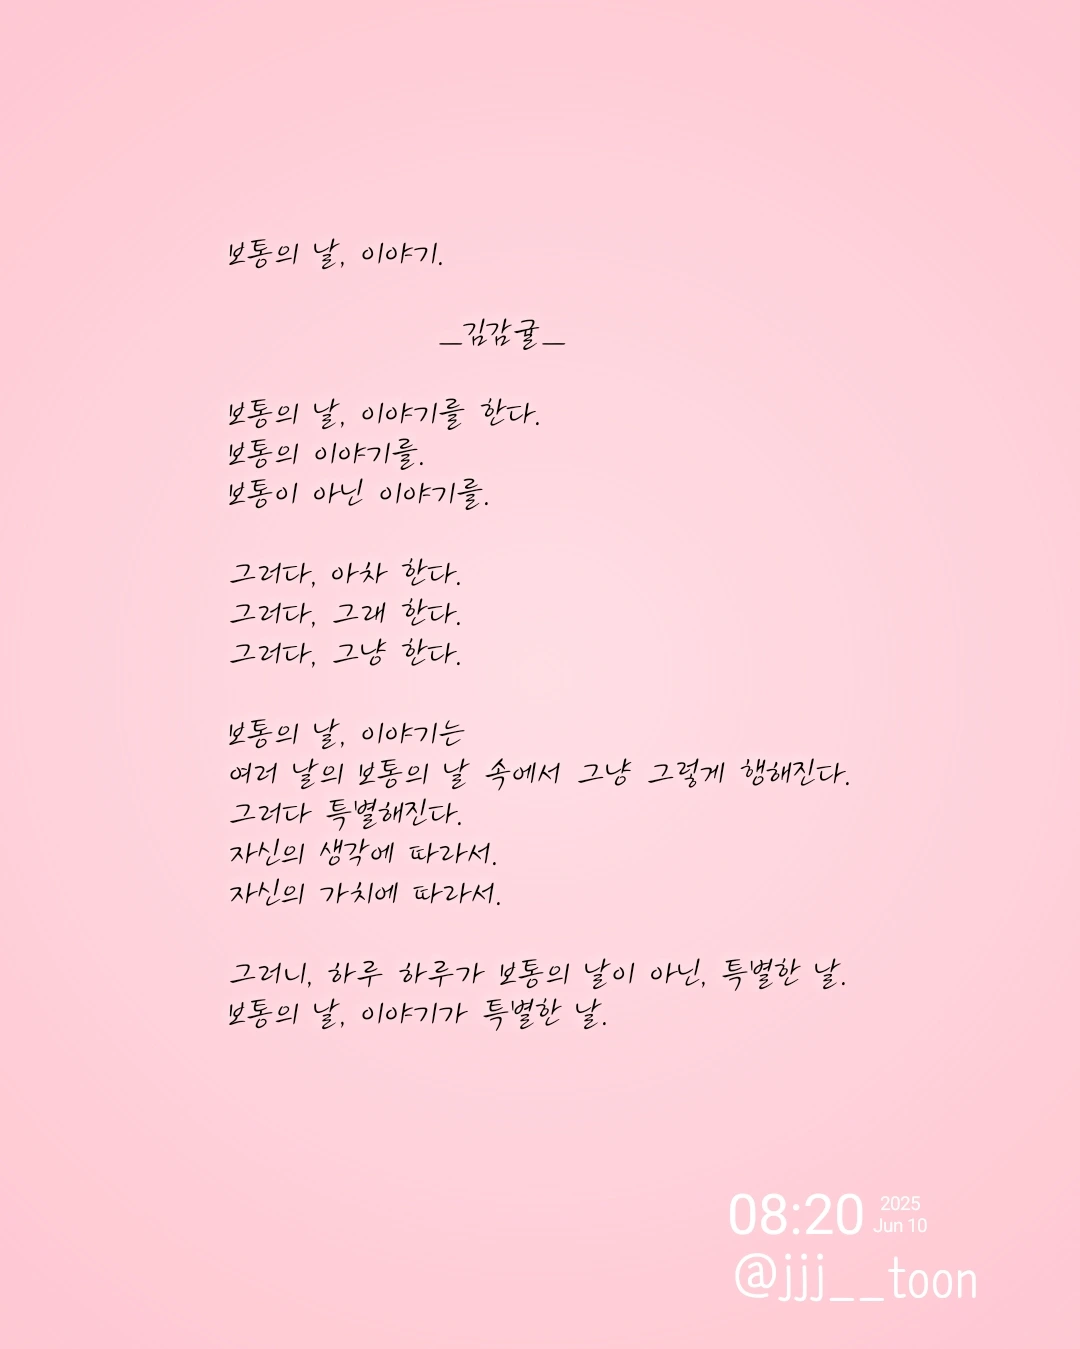 보통의 날, 이야기.
_김감귤_
보통의 날, 이야기를 한다.
보통의 이야기를.
보통이 아닌 이야기를.
그러다, 아차 한다.
그러다, 그래 한다.
그러다, 그냥 한다.
보통의 날, 이야기는
여러 날의 보통의 날 속에서 그냥 그렇게 행해진다.
그러다 특별해진다.
자신의 생각에 따라서.
자신의 가치에 따라서.
그러니, 하루 하루가 보통의 날이 아닌, 특별한 날.
보통의 날, 이야기가 특별한 날.
08:20 2025
Jun 10
@jjj__toon